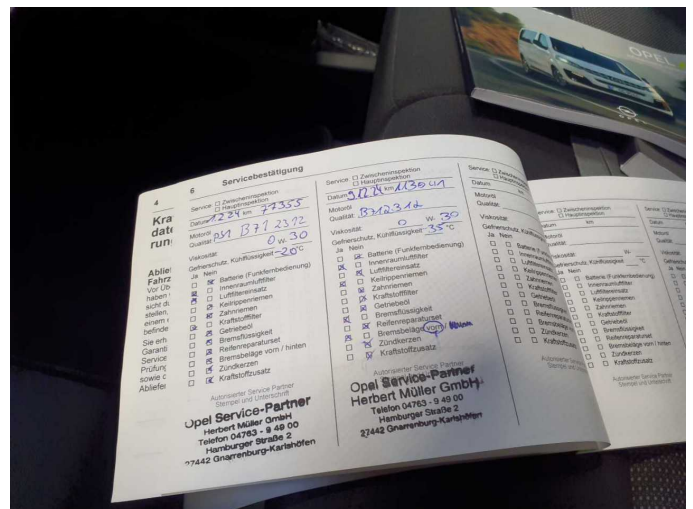 OPEL
4
Kra
date
run
Ablie
Fahrz
haben
stellen,
einem
befinde
Sie erh
Garanti
Service
Prüfung
sowie
Abliefer
6 Servicebestätigung
Service □ Zwischeninspektion
□ Hauptinspektion
Datum 1.2.24 km 77355
Motoröl
Qualität B71 2312
Viskosität 0 W. 30
Gefrierschutz, Kühlflüssigkeit -20 °C
Ja Nein
Batterie (Funkfernbedienung)
Innenraumluftfilter
Luftfiltereinsatz
Keilrippenriemen
Zahnriemen
Kraftstofffilter
Getriebeöl
Bremsflüssigkeit
Reifenreparaturset
Bremsbeläge vorn / hinten
Zündkerzen
Kraftstoffzusatz
Autorisierter Service Partner
Stempel und Unterschrift
Opel Service-Partner
Herbert Müller GmbH
Telefon 04763 - 9 49 00
Hamburger Straße 2
27442 Gnarrenburg-Karlshöfen
Service □ Zwischeninspektion
□ Hauptinspektion
Datum 9.12.24 km
Motoröl
Qualität B712312
Viskosität 0 W. 30
Gefrierschutz, Kühlflüssigkeit 35 °C
Ja Nein
Batterie (Funkfernbedienung)
Innenraumluftfilter
Luftfiltereinsatz
Keilrippenriemen
Zahnriemen
Kraftstofffilter
Getriebeöl
Bremsflüssigkeit
Reifenreparaturset
Bremsbeläge vorn /
Zündkerzen
Kraftstoffzusatz
Autorisierter Service Partner
Opel Service-Partner
Herbert Müller GmbH
Telefon 04763 - 9 49 00
Hamburger Straße 2
27442 Gnarrenburg-Karlshöfen
Service □
Datum
Motoröl
Qualität
Viskosität
Gefrierschutz
Ja Nein
Service □ Zwischeninspektion
□ Hauptinspektion
Datum km
Motoröl
Qualität
Viskosität W.
Gefrierschutz, Kühlflüssigkeit °C
Ja Nein
Batterie (Funkfernbedienung)
Innenraumluftfilter
Luftfiltereinsatz
Keilrippenriemen
Zahnriemen
Kraftstofffilter
Getriebeöl
Bremsflüssigkeit
Reifenreparaturset
Bremsbeläge vorn / hinten
Zündkerzen
Kraftstoffzusatz
Autorisierter Service Partner
Service
Datum
Motoröl
Qualität
Viskosität
Gefrierschutz
Ja Nein